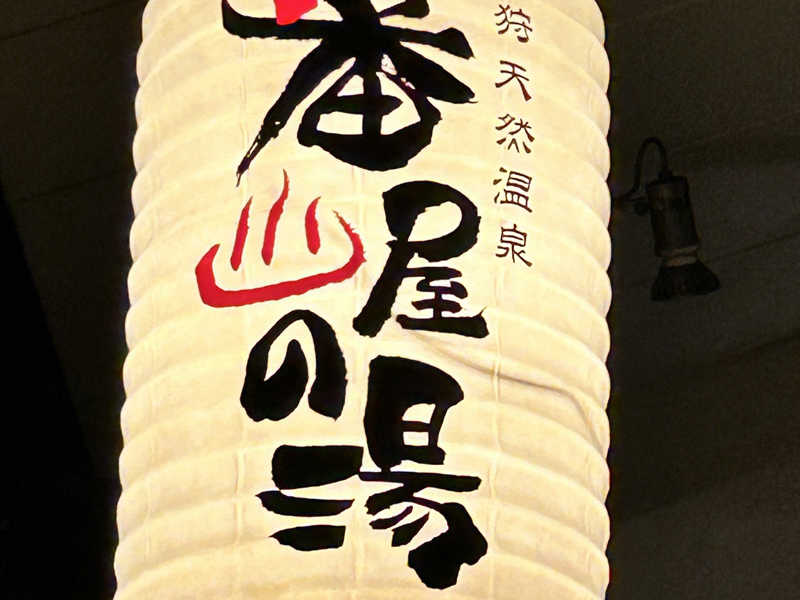 狩天然温泉
番屋の湯